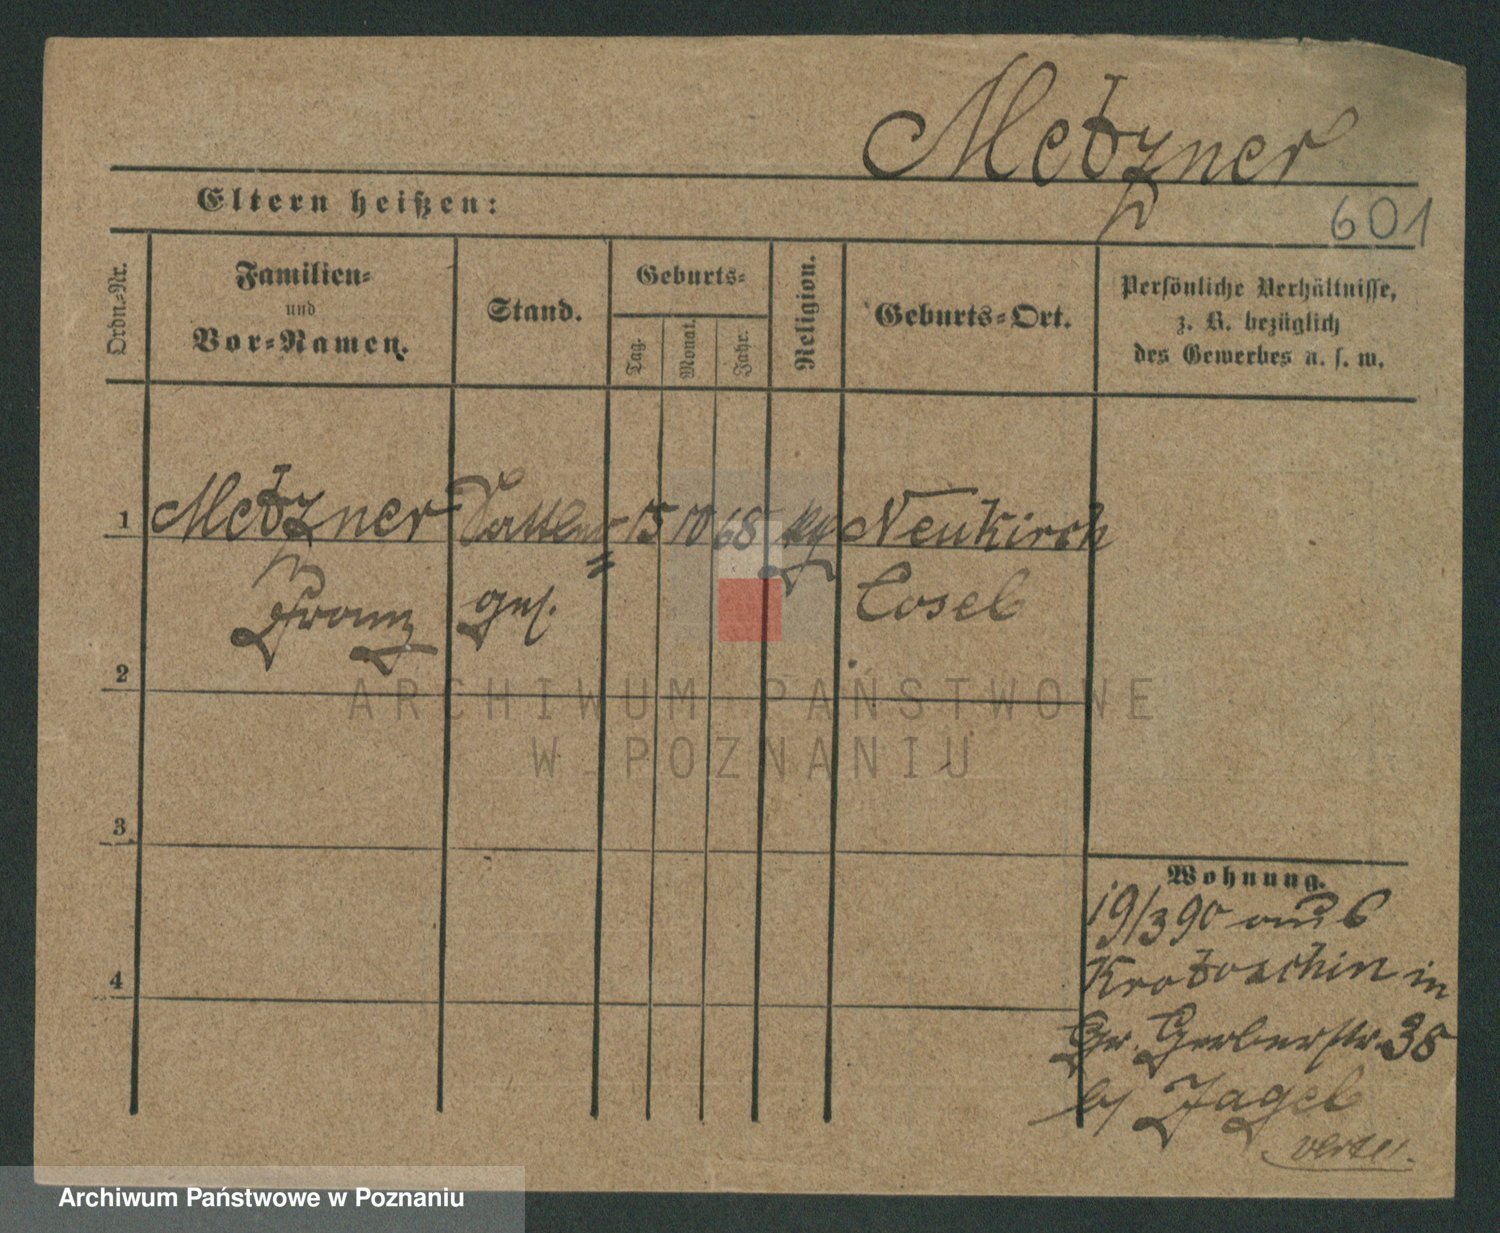 Metzner
Eltern heißen:
601
Ordn.-Nr.
Familien-
und
Vor-Namen.
Stand.
Geburts-
Tag.
Monat.
Jahr.
Religion.
Geburts-Ort.
Persönliche Verhältnisse,
z. B. bezüglich
des Gewerbes u. s. w.
1 Metzner Sattler= 15 10 68 kg Neukirch
Franz ges. Cosel
2
3
4
Wohnung.
19/3 90 aus
Krotoschin in
Gr. Gerberstr. 38
b/ Jagel
verte.
ARCHIWUM PAŃSTWOWE
W POZNANIU
Archiwum Państwowe w Poznaniu